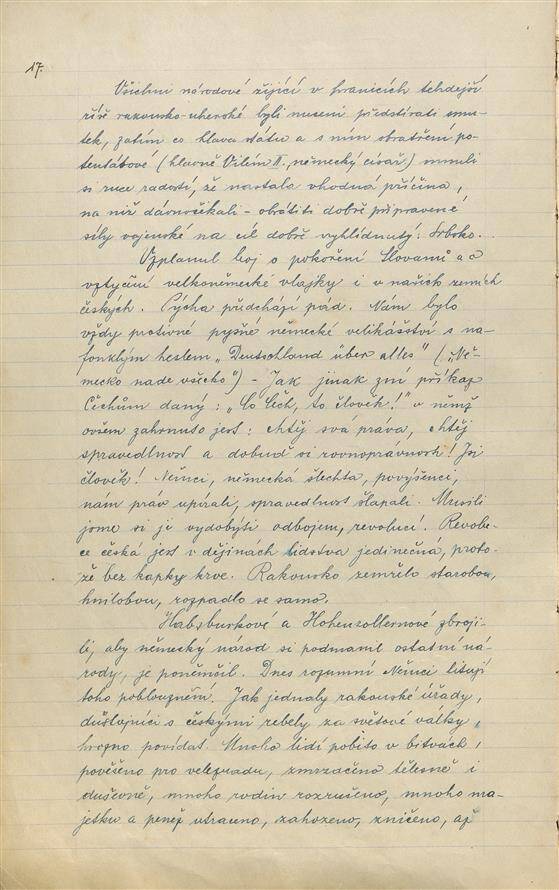 17.
Všichni národové žijící v hranicích tehdejší
říše rakousko-uherské byli nuceni předstírati smu-
tek, zatím co hlava státu a s ním sbratření po-
tentátové (hlavně Vilém II., německý císař) mnuli
si ruce radostí, že nastala vhodná příčina,
na niž dávno čekali - obrátiti dobře připravené
síly vojenské na cíl dobře vyhlídnutý: Srbsko.
Vzplanul boj o pokoření Slovanů a o
vztyčení velkoněmecké vlajky i v našich zemích
českých. Pýcha předchází pád. Nám bylo
vždy protivné pyšné německé velikášství s na-
fouklým heslem „Deutschland über alles" („Ně-
mecko nade všecko") - Jak jinak zní příkaz
Čechům daný: „Co Čech, to člověk!" v němž
ovšem zahrnuto jest: chtěj svá práva, chtěj
spravedlnost a dobuď si rovnoprávnosti! Jsi
člověk! Němci, německá šlechta, povýšenci,
nám práv upírali, spravedlnost šlapali. Musili
jsme si jí vydobýti odbojem, revolucí. Revolu-
ce česká jest v dějinách lidstva jedinečná, proto-
že bez kapky krve. Rakousko zemřelo starobou,
hnilobou, rozpadlo se samo.
Habsburkové a Hohenzollernové zbroji-
li, aby německý národ si podmanil ostatní ná-
rody, je poněmčil. Dnes rozumní Němci litují
toho poblouznění. Jak jednaly rakouské úřady,
důstojníci s českými rebely za světové války,
hrozno povídat. Mnoho lidí pobito v bitvách,
pověšeno pro velezradu, zmrzačeno tělesně i
duševně, mnoho rodin rozrušeno, mnoho ma-
jetku a peněz utraceno, zahozeno, zničeno, až